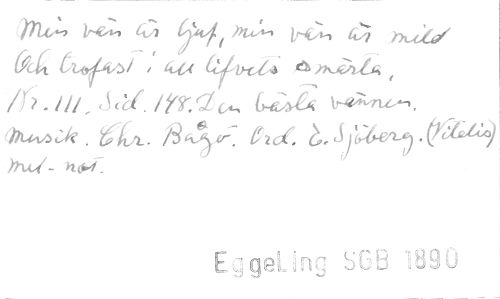 Min vän är ljuf, min vän är mild
Och trofast i all lifvets smärta,
Nr. 111. Sid. 148. Den bästa vännen.
Musik. Chr. Bagö. Ord. E. Sjöberg. (Vitalis)
mel-not.
EggeLing SGB 1890